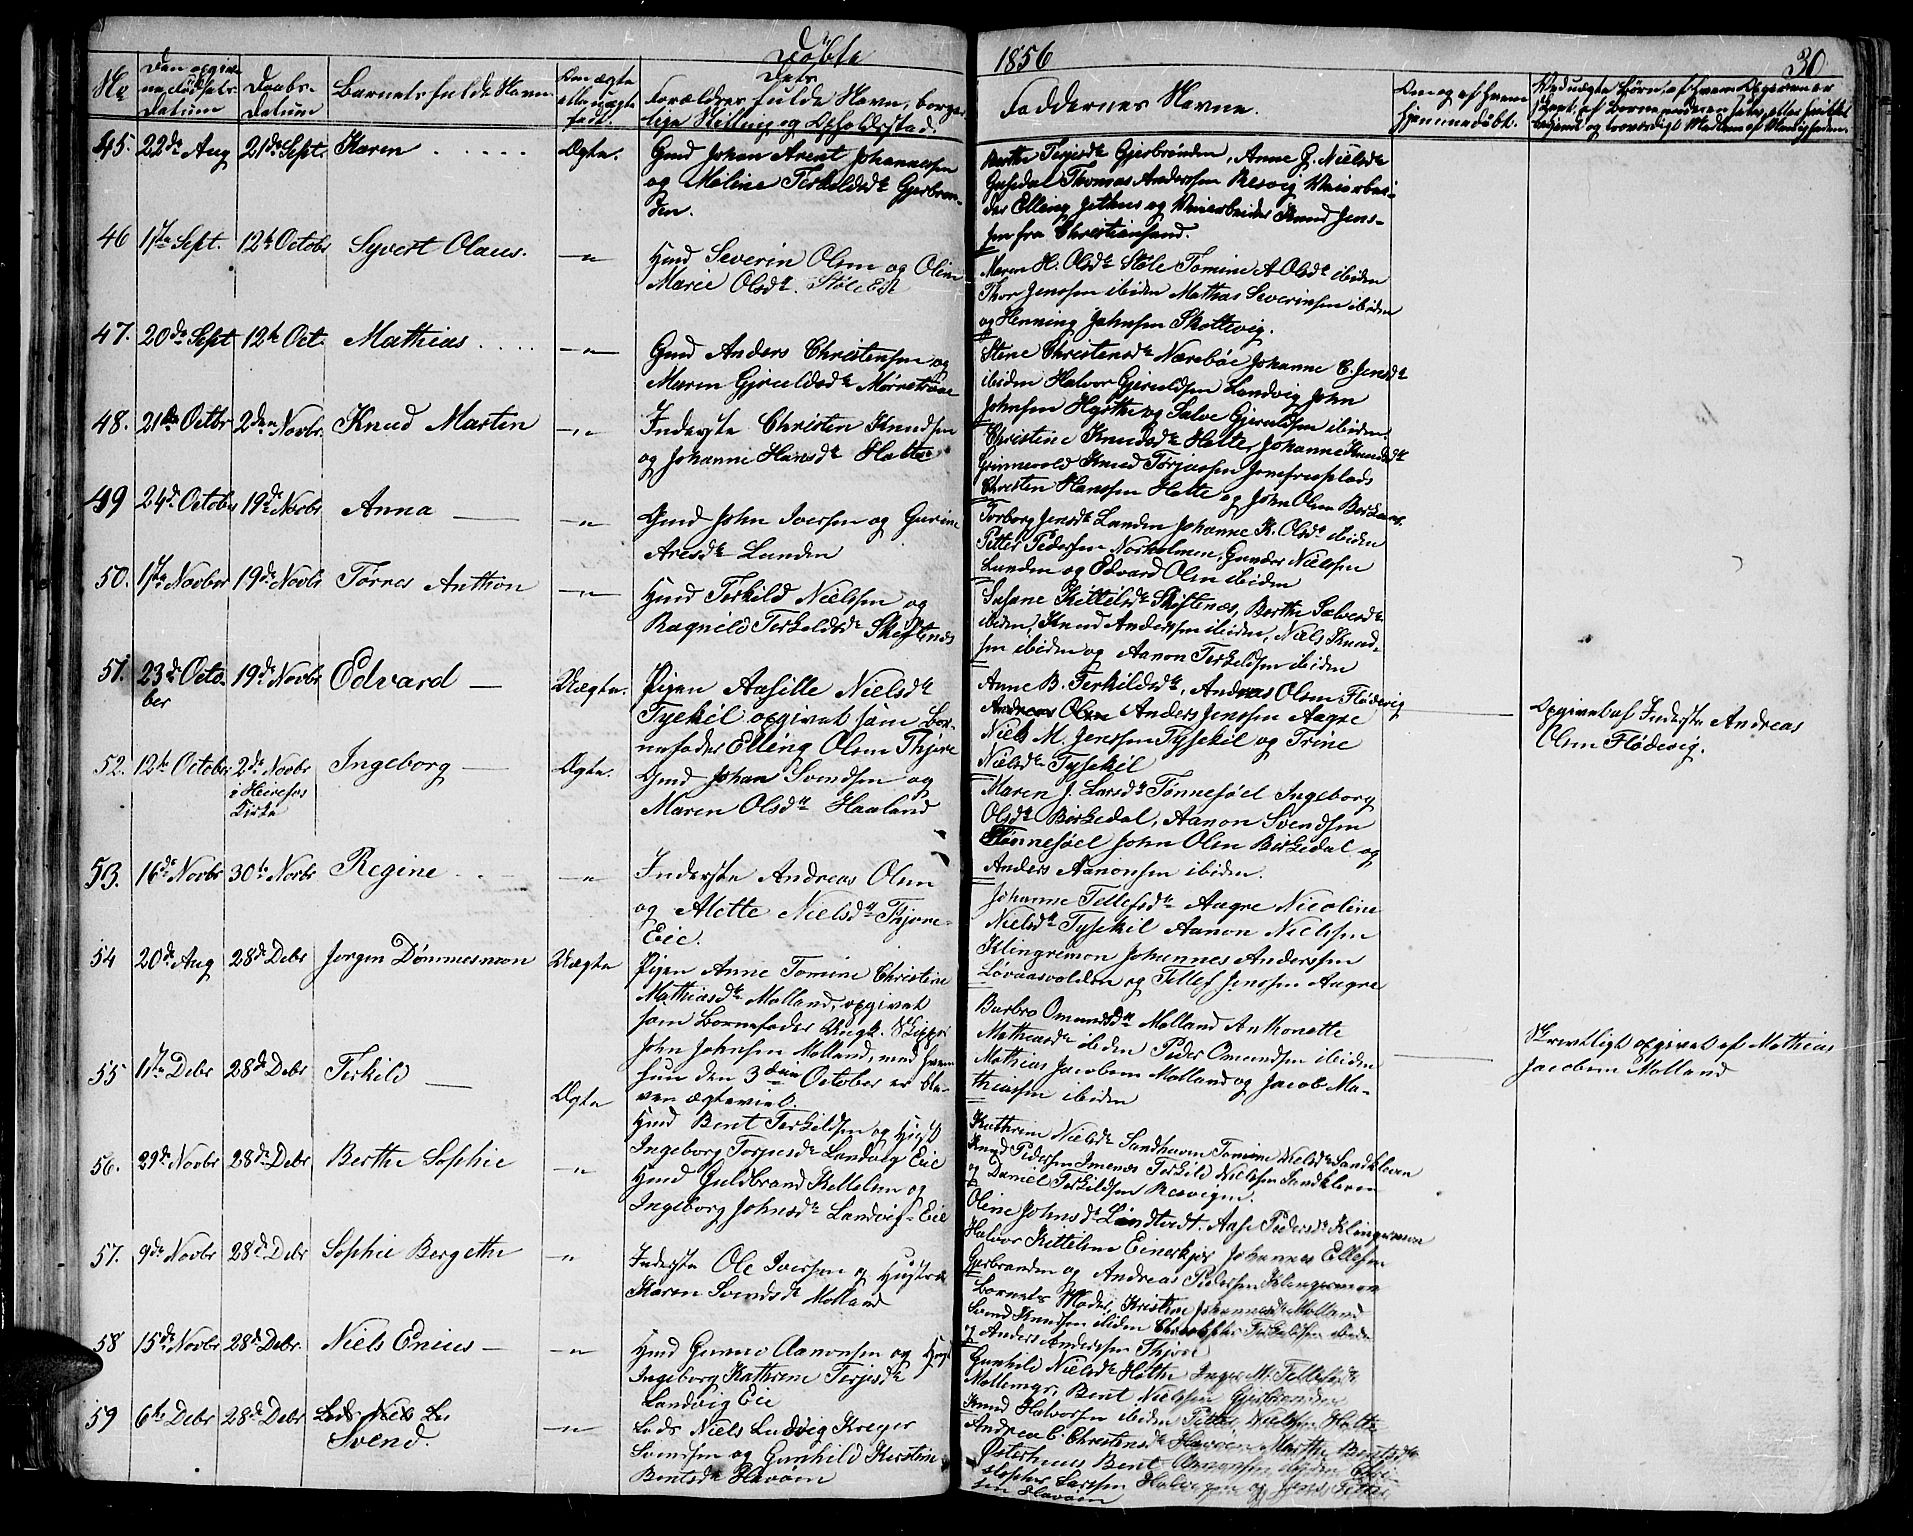 Døbte
1856
30
No
Den opgiv-
ne Fødsels
Datum
Daabs-
Datum
Barnets fulde Navn
Om ægte
eller uægte
født
Dets
Forældres fulde Navn, borger-
lige Stilling og Opholdssted.
Faddernes Navne.
Om og af hvem
hjemmedøbt.
45. 22de Aug 21de Sept. Karen Ægte.
Gmd Johan Arent Johannessen
og Maline Terkildsdr Gjerbrøn-
den.
Berthe Terjesdr Gjerbrønden, Anne G. Nielsdr
Gusedal Thomas Anderssen Resvig Veiarbei-
der Elling Jethus og Veiarbeider Knud Jens-
sen fra Christiansand.
46 1ste Sept. 12te Octobr Syvert Olaus. -"-
Hmd Severin Olsen og Oline
Marie Olsdr. Støle Eie
Maren H. Olsdr Støle Tomine A Olsdr ibiden
Thor Jenssen ibiden Mathias Severinsen ibiden
og Henning Johnsen Skottevig.
47. 20de Sept 12te Oct. Mathias -"-
Gmd Anders Christensen og
Maren Gjeruldsdr Mørretvae
Stene Christensdr Nærebøe Johanne C. Jensdr
ibiden Halvor Gjeruldsen Landvig John
Johnsen Hørthe og Salve Gjeruldsen ibiden.
48. 21de Octbr 2den Novbr. Knud Martin -"-
Inderste Christen Knudsen
og Johanne Hansdr Holte
Christine Knudsdr Holte, Johanne Knudsdr
Grinnevold Knud Torjussen Jomfrueplads
Christen Hanssen Holte og John Olsen
49 24de Octobr 19de Novbr Anna -"-
Gmd John Iversen og Gurine
Aresdr Lunden
Torborg Jensdr Lunden Johanne K. Olsdr ibiden
Petter Pedersen Norholmen, Gunder Nielsen
Lunden og Edvard Olsen ibiden
50. 1ste Novber 19de Novbr Tørres Anthon -"-
Hmd Terkild Nielssen og
Ragnild Terkeldsdr Skiftenes
Susane Kittilsdr Skiftenes, Berthe Salvesdr
ibiden, Knud Anderssen ibiden, Niels Knud-
sen ibiden og Aanon Terkeldsen ibiden
51. 23de Octo-
ber 19de Novbr Edvard Uægte.
Pigen Aasille Nielsdr
Tysekil opgivet som Bar-
nefader Elling Olsen Thjore
Anne B. Terkildsdr, Andreas Olsen Flødevig
Anders Jenssen Aagre
Niels M. Jenssen Tysekil og Trine
Nielsdr Tysekil
Opgivet af Inderste Andreas
Olsen Flødevig.
52. 12te October 2de Novbr
i Heirefos
Kirke Ingeborg Ægte.
Gmd Johan Svendsen og
Maren Olsdr Haaland
Maren J. Larsdr Tønnesøel Ingeborg
Olsdr Birkedal, Aanon Svendsen
Tønnesøel John Olsen Birkedal og
Anders Aanonsen ibiden.
53. 16de Novbr 30te Novbr Regine -"-
Inderste Andreas Olsen
og Alette Nielsdr Thjore-
Eie.
Johanne Tellefsdr Aagre Nicoline
Nielsdr Tysekil Aanon Nielssen
Klingremon Johannes Anderssen
Løvaasvolden og Tellef Jenssen Aagre
54 20de Aug 28de Debr Jørgen Dømmesmoen Uægte
Pigen Anne Tomine Christine
Mathiasdr Molland, opgivet
som Barnefader Ungk. Skipper
John Johnsen Molland, med hvem
hun den 3die October er ble-
ven ægteviet.
Barbro Omundsdr Molland Anthonette
Mathiasdr ibiden Peder Omundsen ibiden
Mathias Jacobsen Molland og Jacob Ma-
thiassen ibiden
Skrivtligt opgivet af Mathias
Jacobsen Molland
55 1ste Debr 28de Debr Terkild Ægte
Hmd Bent Terkildsen og Hust
Ingeborg Torjusdr Landvig Eie
Kathrine Nielsdr Sandhaven Tomine Nielsdr Sandkleven
Knud Pedersen Imenes Terkild Nielssen Sandkleven
og Daniel Terkildsen Resvigen.
56. 29de Novbr 28de Debr Berthe Sophie -"-
Hmd Guldbrand Kittelsen og
Ingeborg Johnsdr Landvig-Eie
Oline Johnsdr Landtvedt. Aase Pedersdr Klingremon
Halvor Kittelsen Einerkjær Johannes Ellefsen
Gjerbrønden og Andreas Pedersen Klingremoen
57. 9de Novbr 28de Debr Sophie Bergethe "
Inderste Ole Iverssen og Hustru
Karen Svendsdr Molland
Barnets Moder, Kristine Johannesdr Molland
Svend Knudsen ibiden Christopher Terkeldsen ibiden
og Anders Anderssen Thjore
58 15de Novbr 28de Debr Niels Enius -"-
Hmd Gunder Aanonsen og Hust
Ingeborg Kathrine Terjesdr
Landvig Eie
Gunhild Nielsdr Holte Inger M. Tellefsdr
Mollemyr, Bent Nielssen Gjerbrønden
Knud Halvorsen ibiden Petter Nielssen Holte
59 6te Debr 28de Debr
Svend. -"-
Lods Niels Ludvig Kreger
Svendsen og Gunhild Kirstine
Bentsdr Havøen
Andrea C. Christensdr Havøen Marthe Bentsdr
Østerhuus Bent Omundsen ibiden Chri-
stopher Larssen Halvorsen og Jens Petter-
sen Havøen